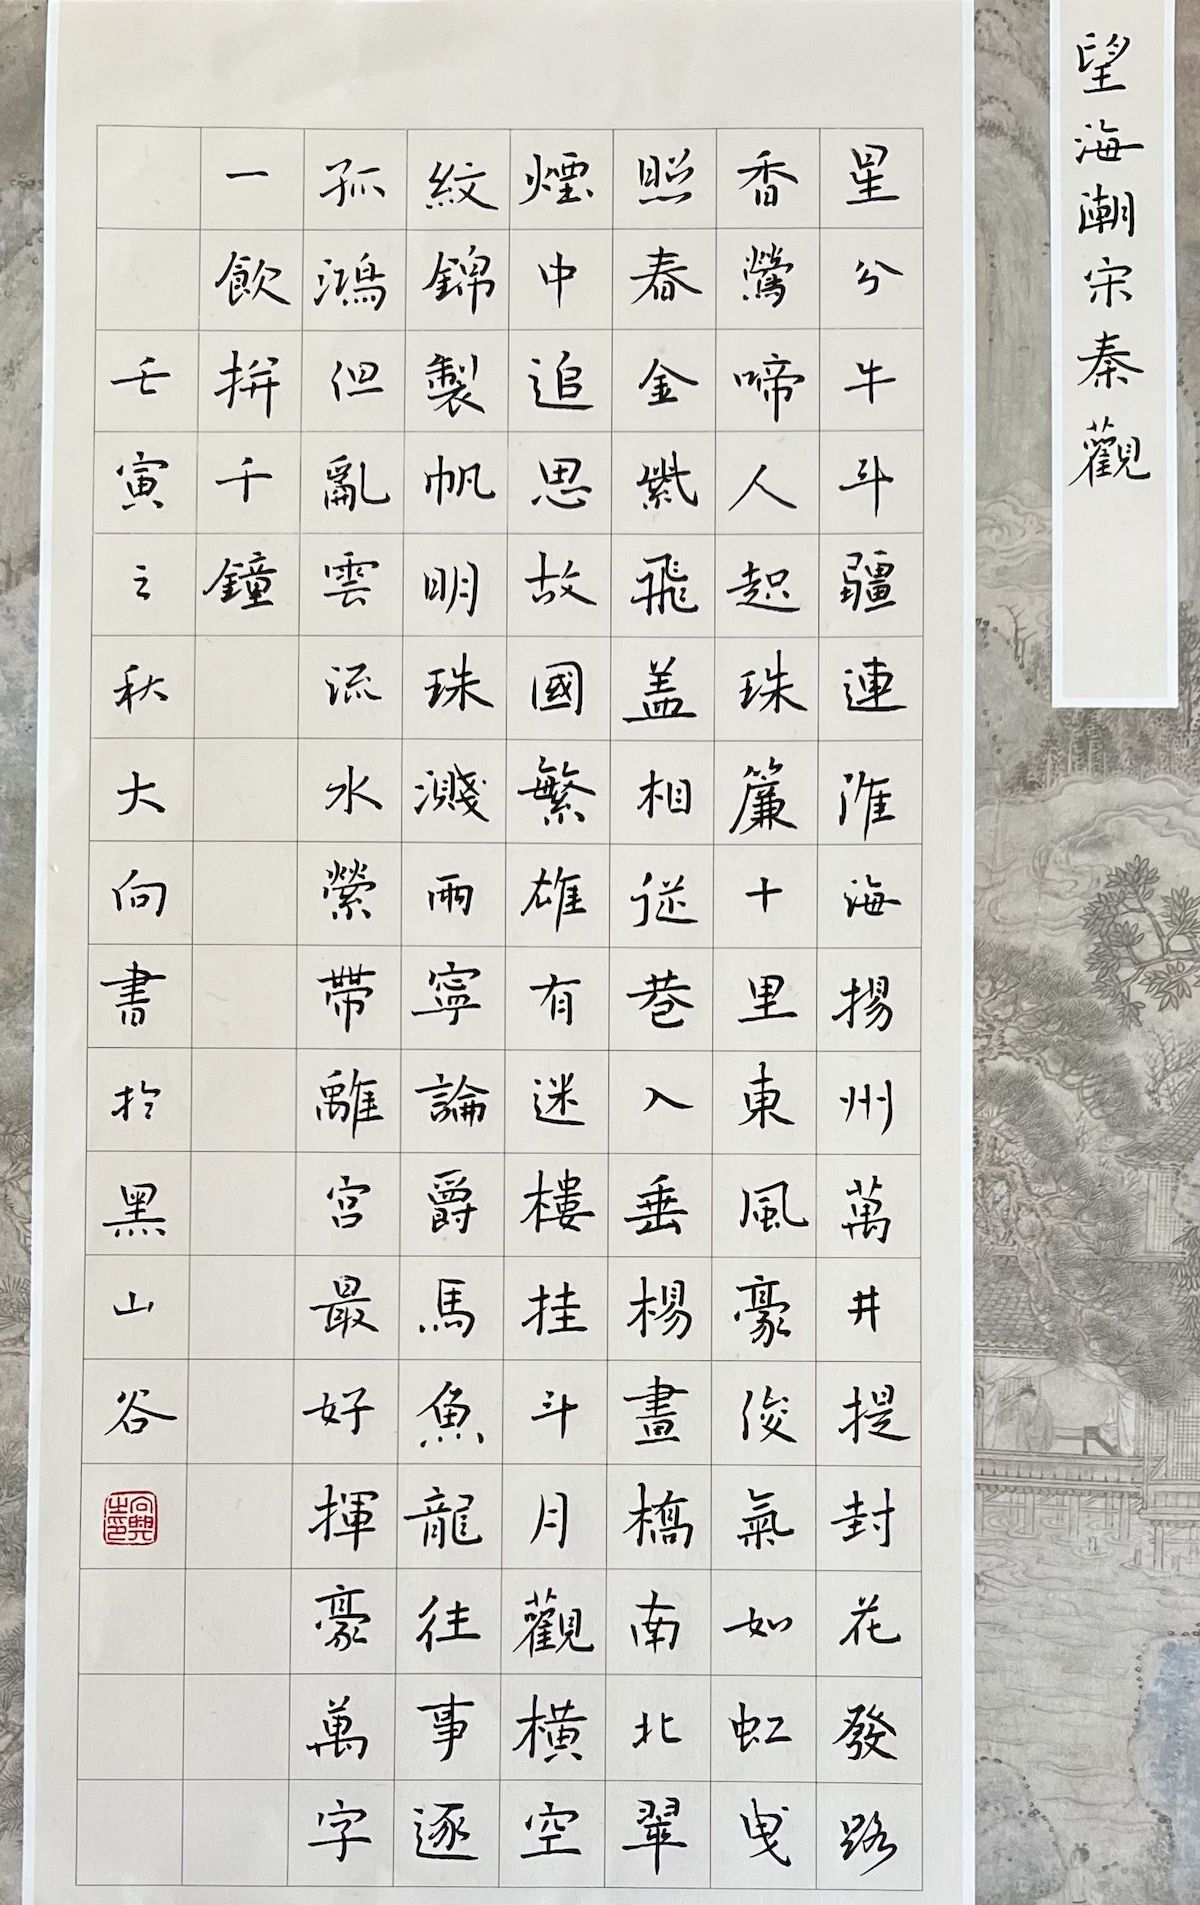 望海潮宋秦觀
星分牛斗疆連淮海揚州萬井提封花發路
香鶯啼人起珠簾十里東風豪俊氣如虹曳
照春金紫飛盖相從巷入垂楊畫橋南北翠
煙中追思故國繁雄有迷樓挂斗月觀橫空
紋錦製帆明珠濺雨寧論爵馬魚龍往事逐
孤鴻但亂雲流水縈帶離宮最好揮豪萬字
一飲拼千鐘
壬寅之秋大向書於黑山谷
向興之印